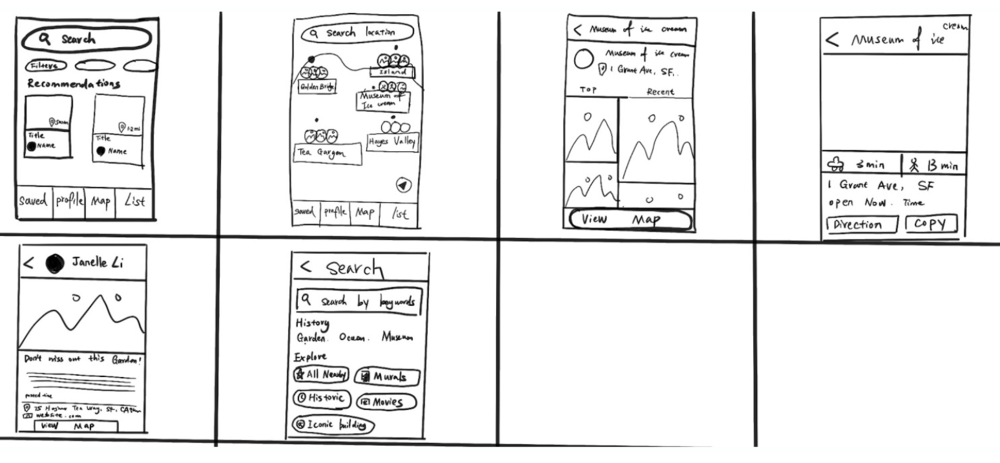 Search
Filters
Recommendations
Title
Name
Title
Name
saved profile Map List
search location
Island
Golden Bridge
Museum of
Ice cream
Hayes Valley
Tea Gargen
saved profile Map list
< Museum of ice cream
Museum of ice cream
1 Grant Ave, SF..
TOP Recent
View Map
< Museum of ice cream
3 min 13 min
1 Grant Ave, SF
open Now. Time
Direction COPY
< Janelle Li
Don't miss out this Garden!
website.com
View Map
< Search
search by keywords
History
Garden. Ocean. Museum
Explore
All Nearby Murals
Historic Movies
Iconic building